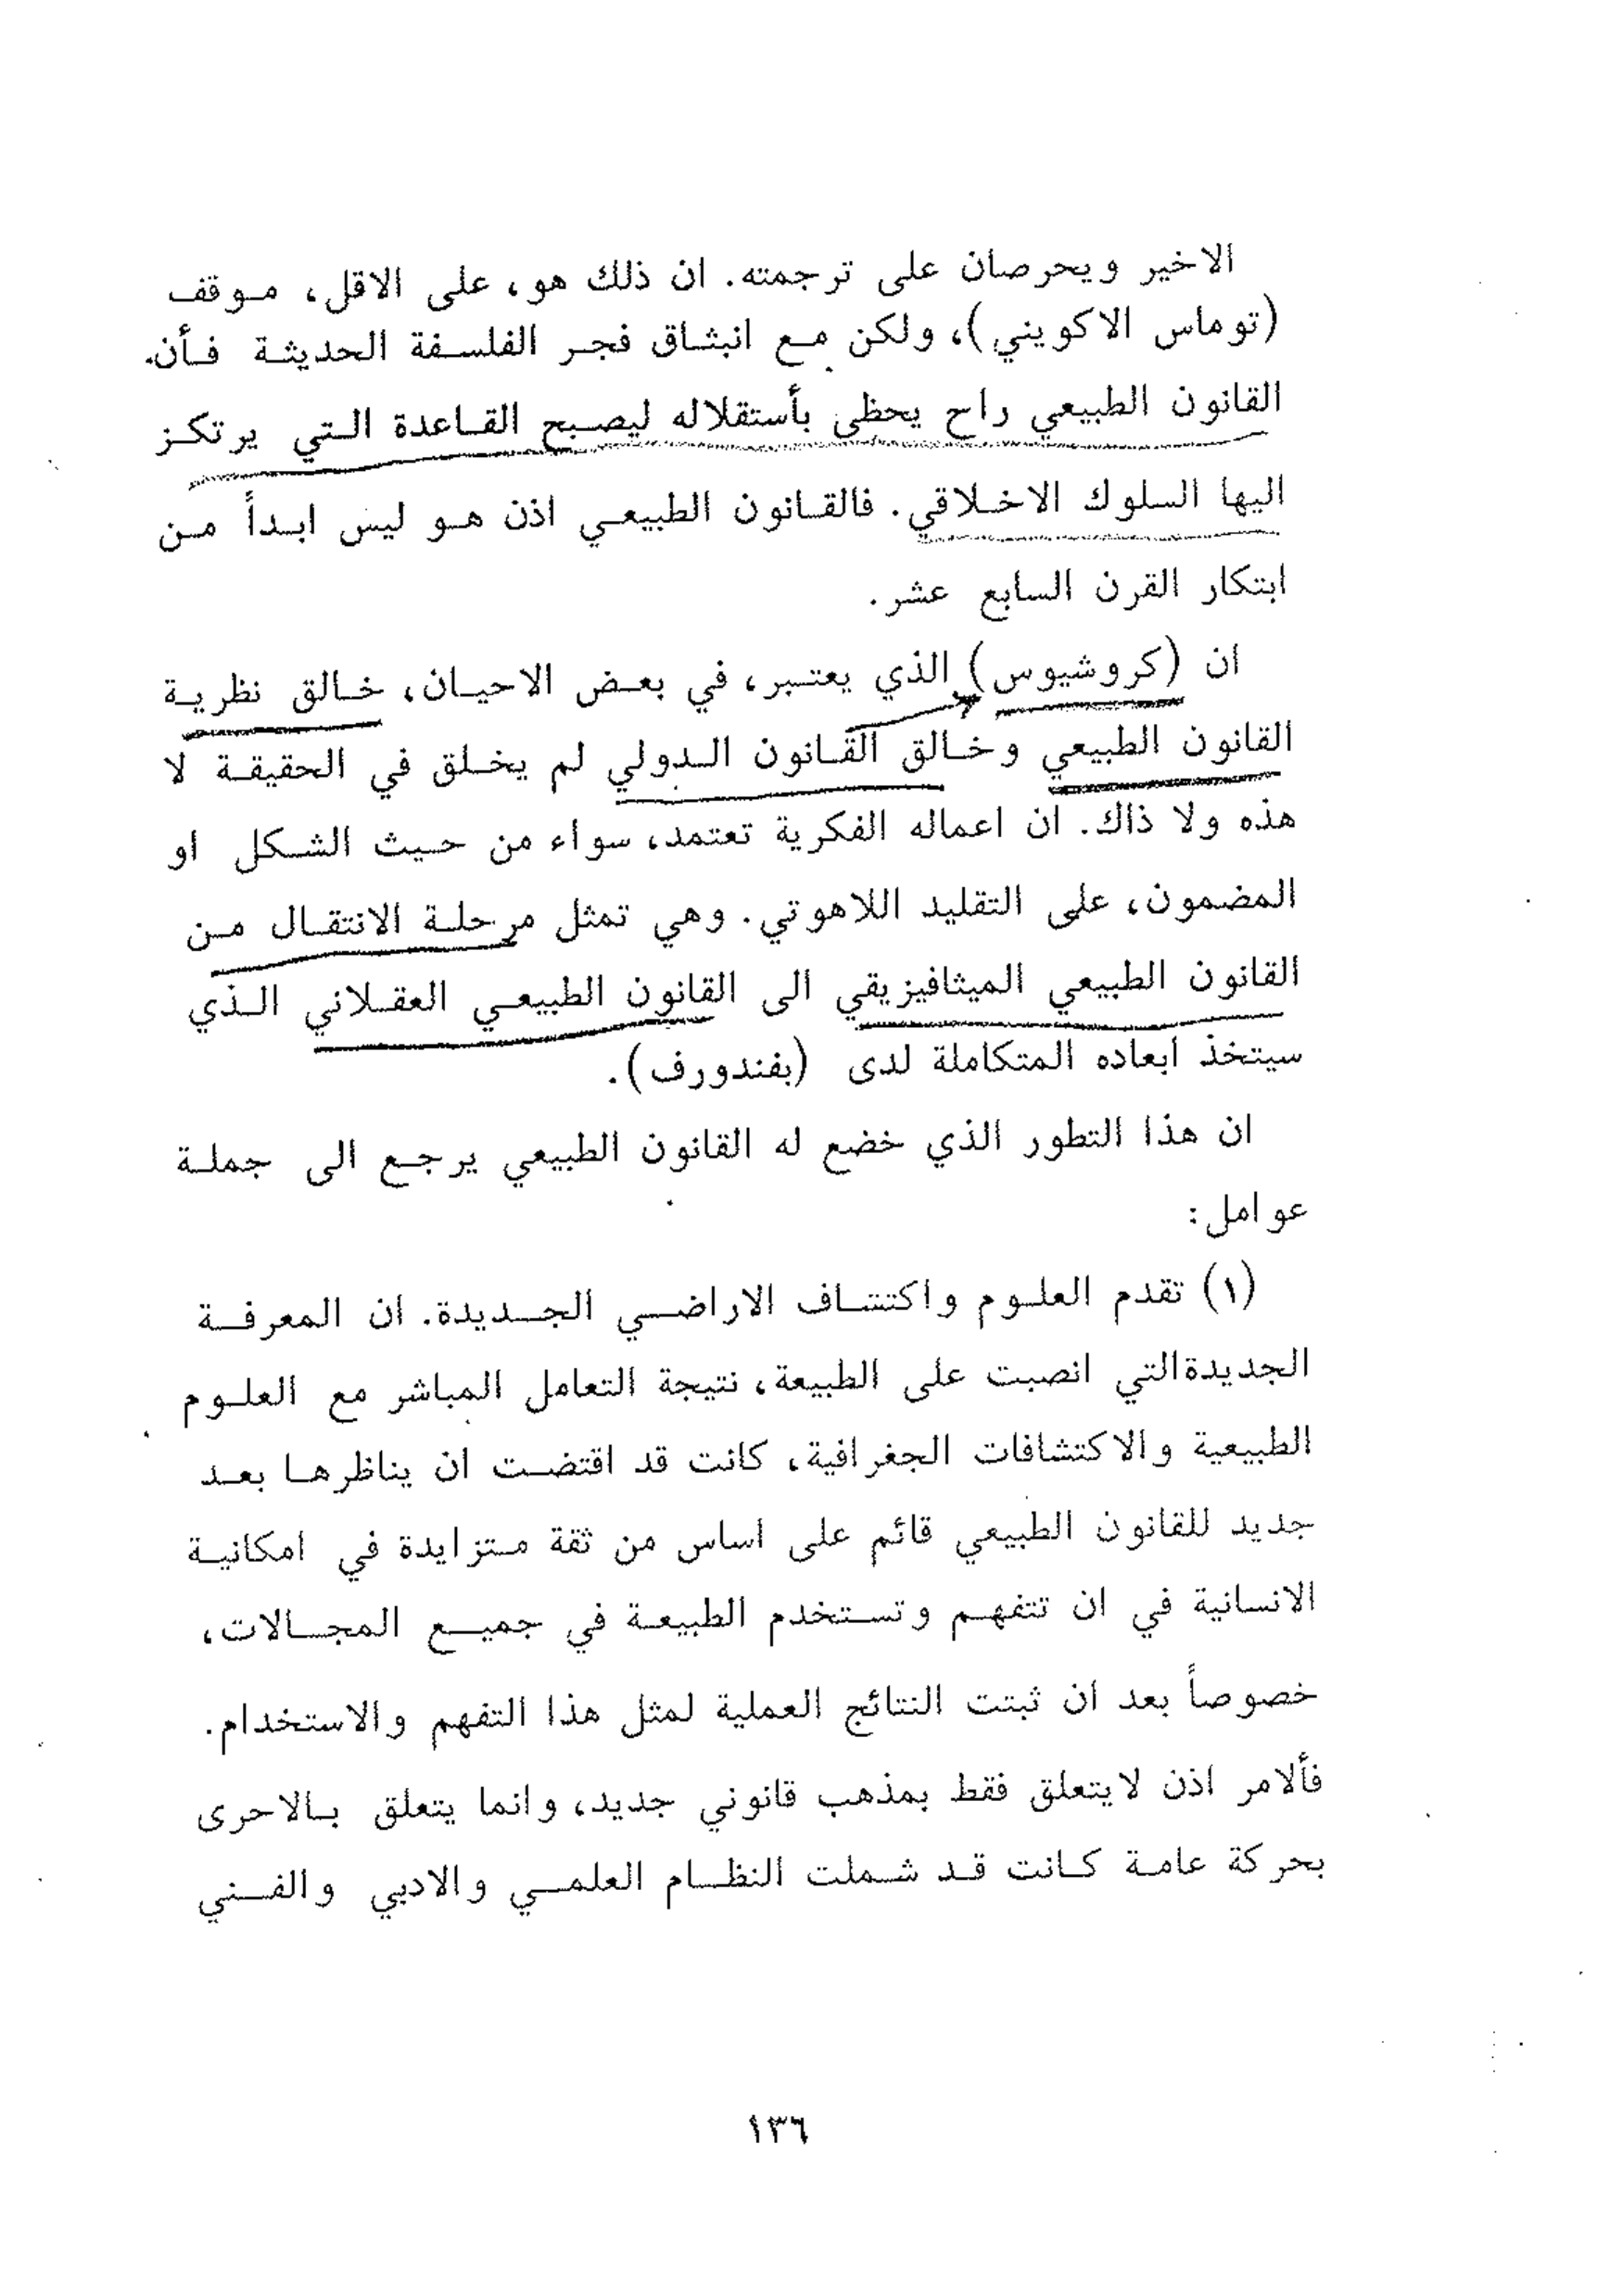 الاخير ويحرصان على ترجمته. ان ذلك هو، على الاقل، موقف
(توماس الاكويني)، ولكن مع انبثاق فجر الفلسفة الحديثة فأن
القانون الطبيعي راح يحظى بأستقلاله ليصبح القاعدة التي يرتكز
اليها السلوك الاخلاقي. فالقانون الطبيعي اذن هو ليس ابداً من
ابتكار القرن السابع عشر.
ان (كروشيوس) الذي يعتبر، في بعض الاحيان، خالق نظرية
القانون الطبيعي وخالق القانون الدولي لم يخلق في الحقيقة لا
هذه ولا ذاك. ان اعماله الفكرية تعتمد، سواء من حيث الشكل او
المضمون، على التقليد اللاهوتي. وهي تمثل مرحلة الانتقال من
القانون الطبيعي الميثافيزيقي الى القانون الطبيعي العقلاني الذي
سيتخذ ابعاده المتكاملة لدى (بفندورف).
ان هذا التطور الذي خضع له القانون الطبيعي يرجع الى جملة
عوامل:
(١) تقدم العلوم واكتشاف الاراضي الجديدة. ان المعرفة
الجديدةالتي انصبت على الطبيعة، نتيجة التعامل المباشر مع العلوم
الطبيعية والاكتشافات الجغرافية، كانت قد اقتضت ان يناظرها بعد
جديد للقانون الطبيعي قائم على اساس من ثقة متزايدة في امكانية
الانسانية في ان تتفهم وتستخدم الطبيعة في جميع المجالات،
خصوصاً بعد ان ثبتت النتائج العملية لمثل هذا التفهم والاستخدام.
فألامر اذن لايتعلق فقط بمذهب قانوني جديد، وانما يتعلق بالاحرى
بحركة عامة كانت قد شملت النظام العلمي والادبي والفني
١٣٦